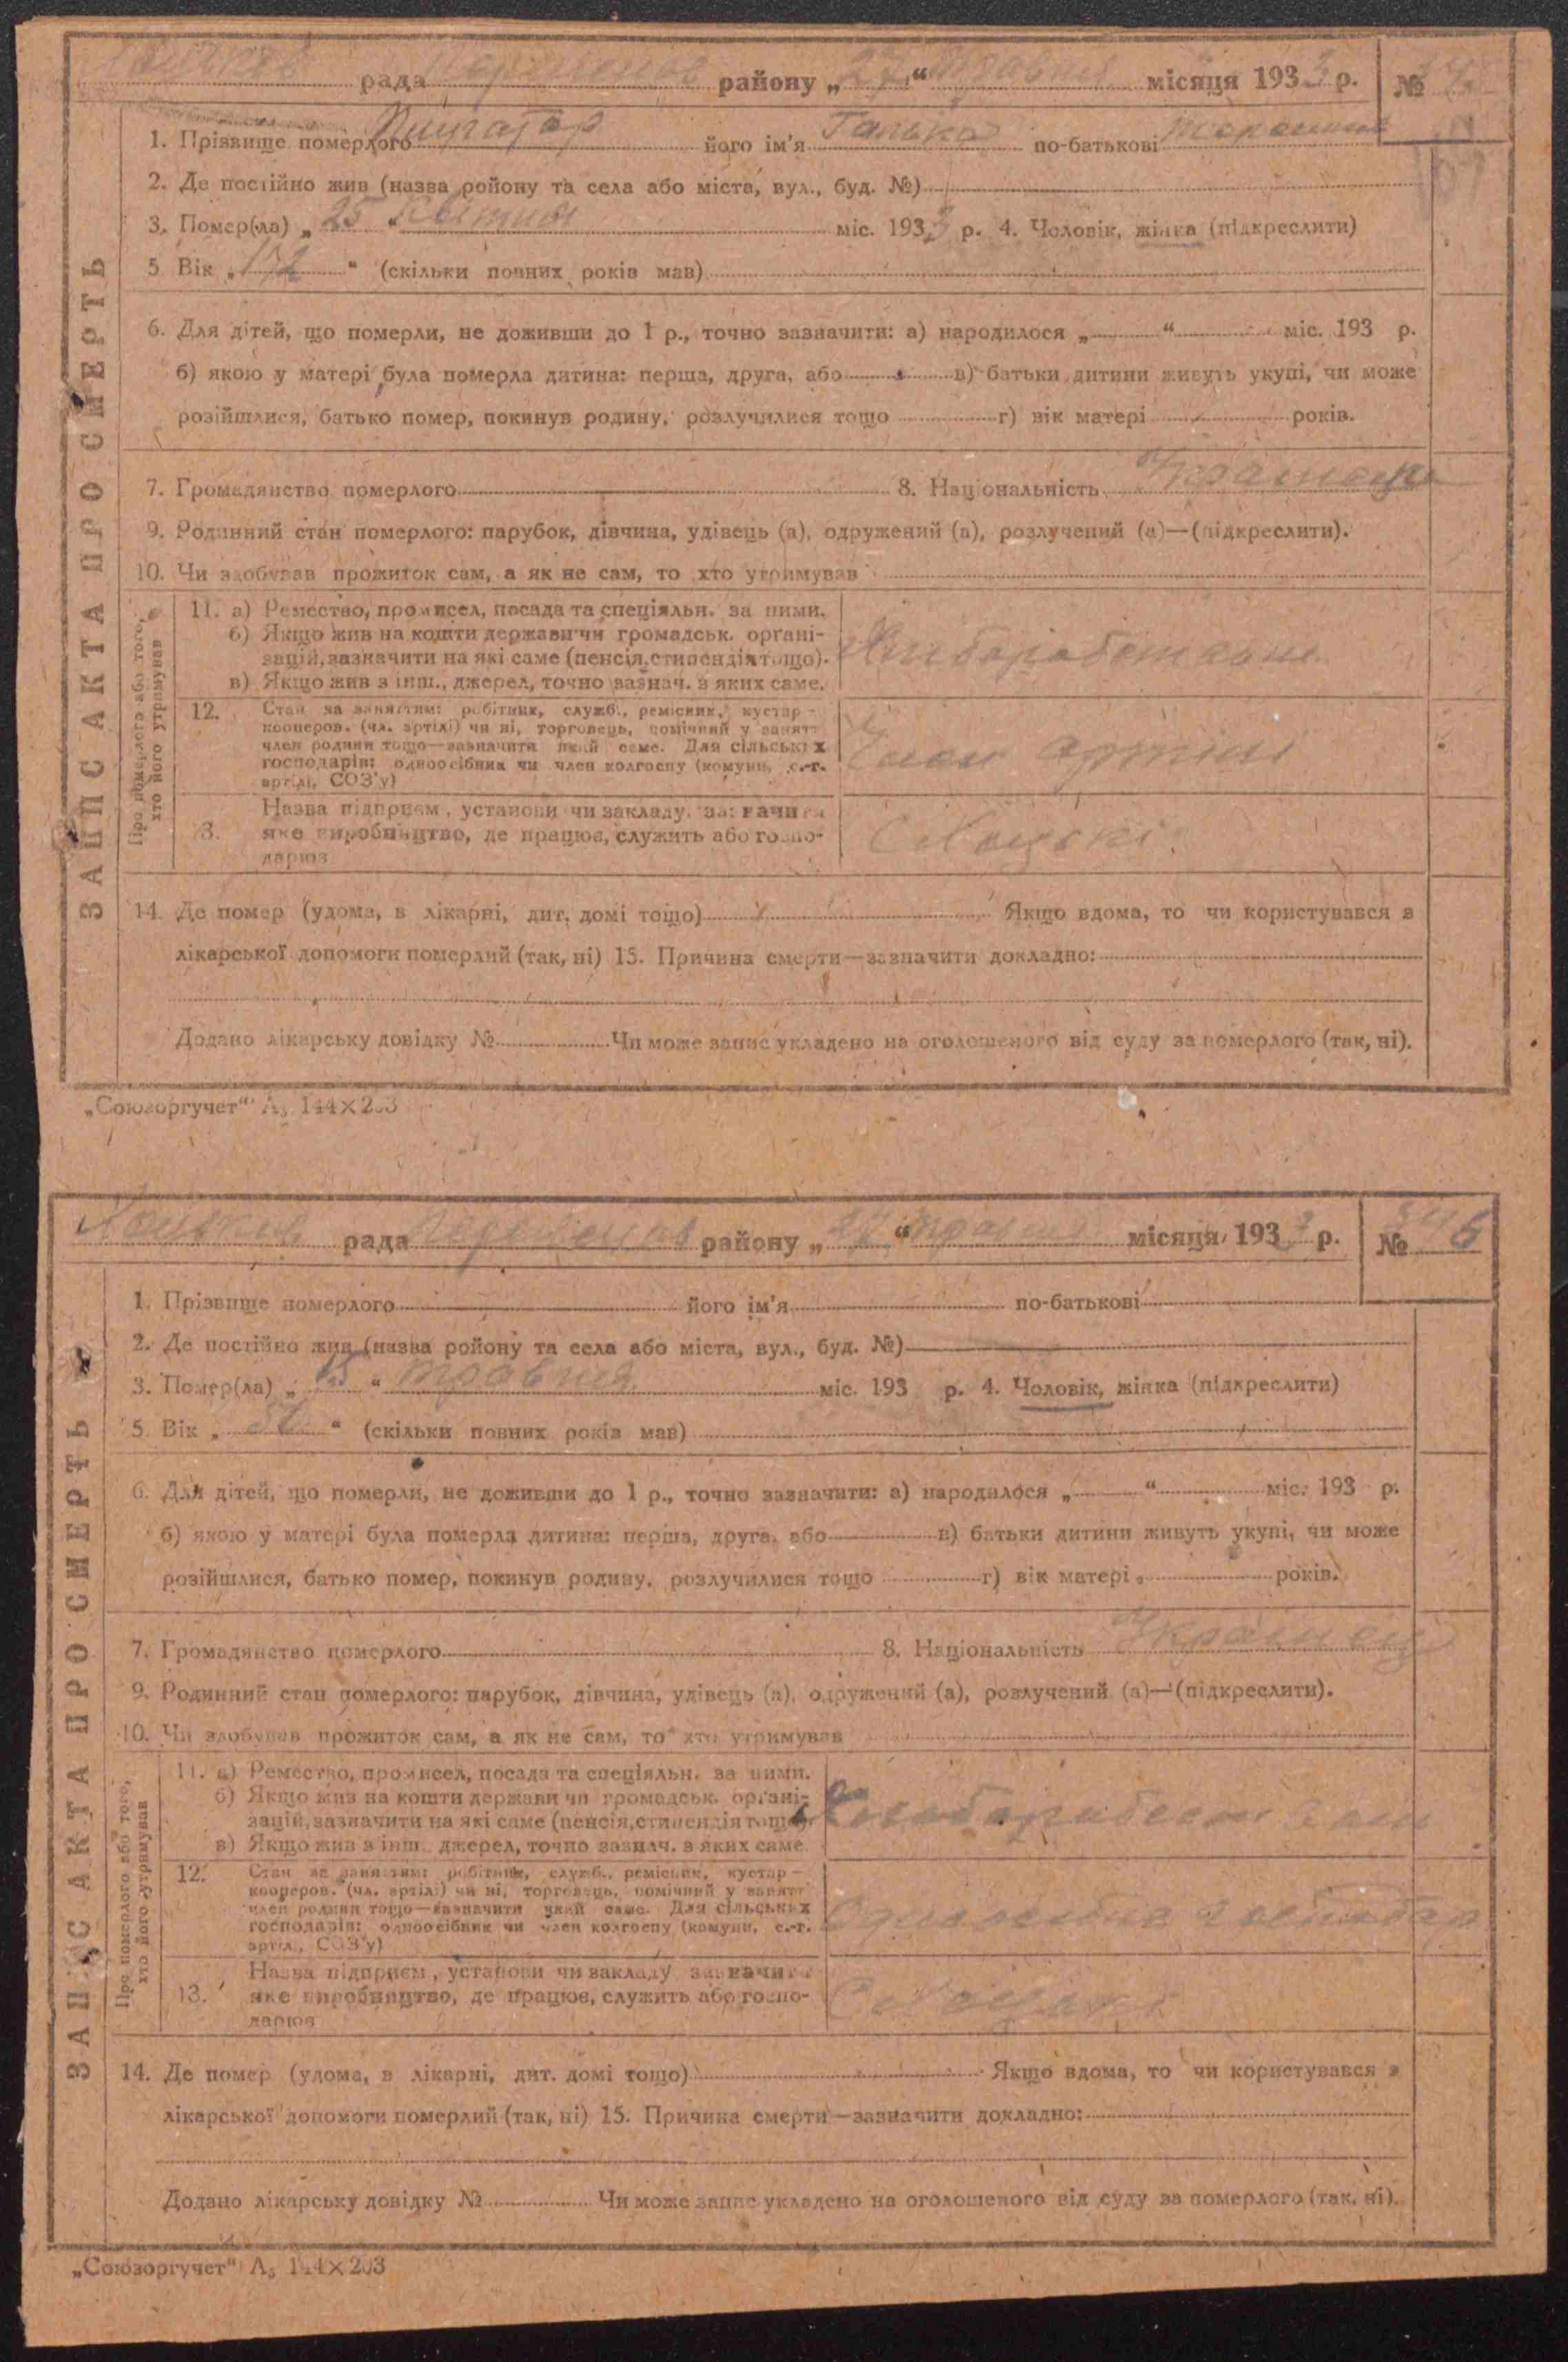 рада району „27“ травня місяця 1933 р. №
1. Прізвище померлого його ім'я Ганька по-батькові
2. Де постійно жив (назва ройону та села або міста, вул., буд. №)
3. Помер(ла) „25“ квітня міс. 1933 р. 4. Чоловік, жінка (підкреслити)
5 Вік „ “ (скільки повних років мав)
6. Для дітей, що померли, не доживши до 1 р., точно зазначити: а) народилося „ “ міс. 193 р.
б) якою у матері була померла дитина: перша, друга, або в) батьки дитини живуть укупі, чи може
розійшлися, батько помер, покинув родину, розлучилися тощо г) вік матері років.
7. Громадянство померлого 8. Національність
9. Родинний стан померлого: парубок, дівчина, удівець (а), одружений (а), розлучений (а)—(підкреслити).
10. Чи здобував прожиток сам, а як не сам, то хто утримував
ЗАПИС АКТА ПРО СМЕРТЬ
Про померлого або того, хто його утримував
11. а) Ремество, промисел, посада та спеціяльн. за ними.
б) Якщо жив на кошти держави чи громадськ. органі-
зацій, зазначити на які саме (пенсія, стипендія тощо).
в) Якщо жив з інш., джерел, точно зазнач. з яких саме.
Хліборобством
12. Стан за заняттям: робітник, служб., ремісник, кустар -
кооперов. (чл. артілі) чи ні, торговець, помічний у занятт
член родини тощо—зазначити який саме. Для сільських
господарів: одноосібник чи член колгоспу (комуни, с.-г.
артілі, СОЗ'у)
Член артілі
13. Назва підприєм, установи чи закладу, зазначити
яке виробництво, де працює, служить або госпо-
дарює
14. Де помер (удома, в лікарні, дит. домі тощо) Якщо вдома, то чи користувався з
лікарської допомоги померлий (так, ні) 15. Причина смерти—зазначити докладно:
Додано лікарську довідку № Чи може запис укладено на оголошеного від суду за померлого (так, ні).
„Союзоргучет“ А₅ 144×203
рада району „27“ травня місяця 1933 р. № 346
1. Прізвище померлого його ім'я по-батькові
2. Де постійно жив (назва ройону та села або міста, вул., буд. №)
3. Помер(ла) „15“ травня міс. 193 р. 4. Чоловік, жінка (підкреслити)
5 Вік „ “ (скільки повних років мав)
6. Для дітей, що померли, не доживши до 1 р., точно зазначити: а) народилося „ “ міс. 193 р.
б) якою у матері була померла дитина: перша, друга, або в) батьки дитини живуть укупі, чи може
розійшлися, батько помер, покинув родину, розлучилися тощо г) вік матері років.
7. Громадянство померлого 8. Національність Українец
9. Родинний стан померлого: парубок, дівчина, удівець (а), одружений (а), розлучений (а)—(підкреслити).
10. Чи здобував прожиток сам, а як не сам, то хто утримував
ЗАПИС АКТА ПРО СМЕРТЬ
Про померлого або того, хто його утримував
11. а) Ремество, промисел, посада та спеціяльн. за ними.
б) Якщо жив на кошти держави чи громадськ. органі-
зацій, зазначити на які саме (пенсія, стипендія тощо).
в) Якщо жив з інш., джерел, точно зазнач. з яких саме
12. Стан за заняттям: робітник, служб., ремісник, кустар -
кооперов. (чл. артілі) чи ні, торговець, помічний у занятт
член родини тощо—зазначити який саме. Для сільських
господарів: одноосібник чи член колгоспу (комуни, с.-г.
артілі, СОЗ'у)
13. Назва підприєм, установи чи закладу зазначити
яке виробництво, де працює, служить або госпо-
дарює
14. Де помер (удома, в лікарні, дит. домі тощо) Якщо вдома, то чи користувався з
лікарської допомоги померлий (так, ні) 15. Причина смерти—зазначити докладно:
Додано лікарську довідку № Чи може запис укладено на оголошеного від суду за померлого (так, ні).
„Союзоргучет“ А₅ 144×203